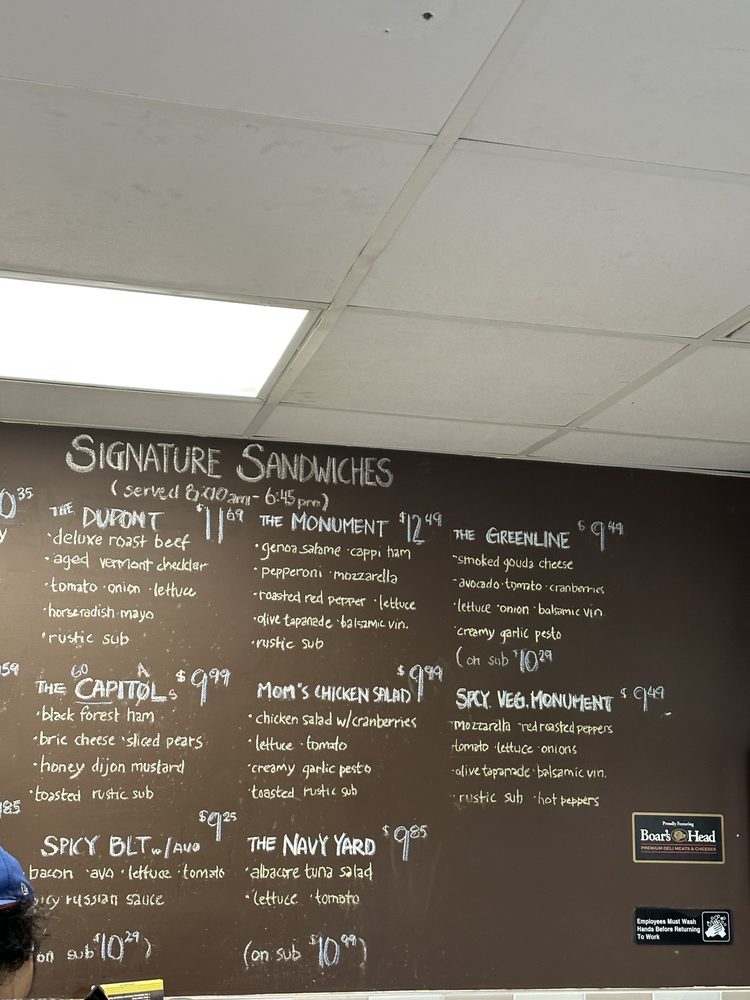 SIGNATURE SANDWICHES
(served 8:00am - 6:45pm)
0 35
y
59
85
THE DUPONT $11 69
·deluxe roast beef
·aged vermont cheddar
·tomato ·onion ·lettuce
·horseradish mayo
·rustic sub
THE MONUMENT $12 49
·genoa salame ·cappi ham
·pepperoni ·mozzarella
·roasted red pepper ·lettuce
·olive tapanade ·balsamic vin.
·rustic sub
THE GREENLINE $9 49
·smoked gouda cheese
·avocado ·tomato ·cranberries
·lettuce ·onion ·balsamic vin
·creamy garlic pesto
(on sub $10 29
GO A
THE CAPITOLS $9 99
·black forest ham
·brie cheese ·sliced pears
·honey dijon mustard
·toasted rustic sub
MOM'S CHICKEN SALAD $9 99
·chicken salad w/cranberries
·lettuce ·tomato
·creamy garlic pesto
·toasted rustic sub
SPCY. VEG. MONUMENT $9 49
·mozzarella ·red roasted peppers
·tomato ·lettuce ·onions
·olive tapanade ·balsamic vin.
·rustic sub ·hot peppers
SPICY BLT w/AVO $9 25
bacon ·avo ·lettuce ·tomato
icy russian sauce
on sub $10 29)
THE NAVY YARD $9 85
·albacore tuna salad
·lettuce ·tomato
(on sub $10 99)
Proudly Featuring
Boar's Head
PREMIUM DELI MEATS & CHEESES
Employees Must Wash
Hands Before Returning
To Work